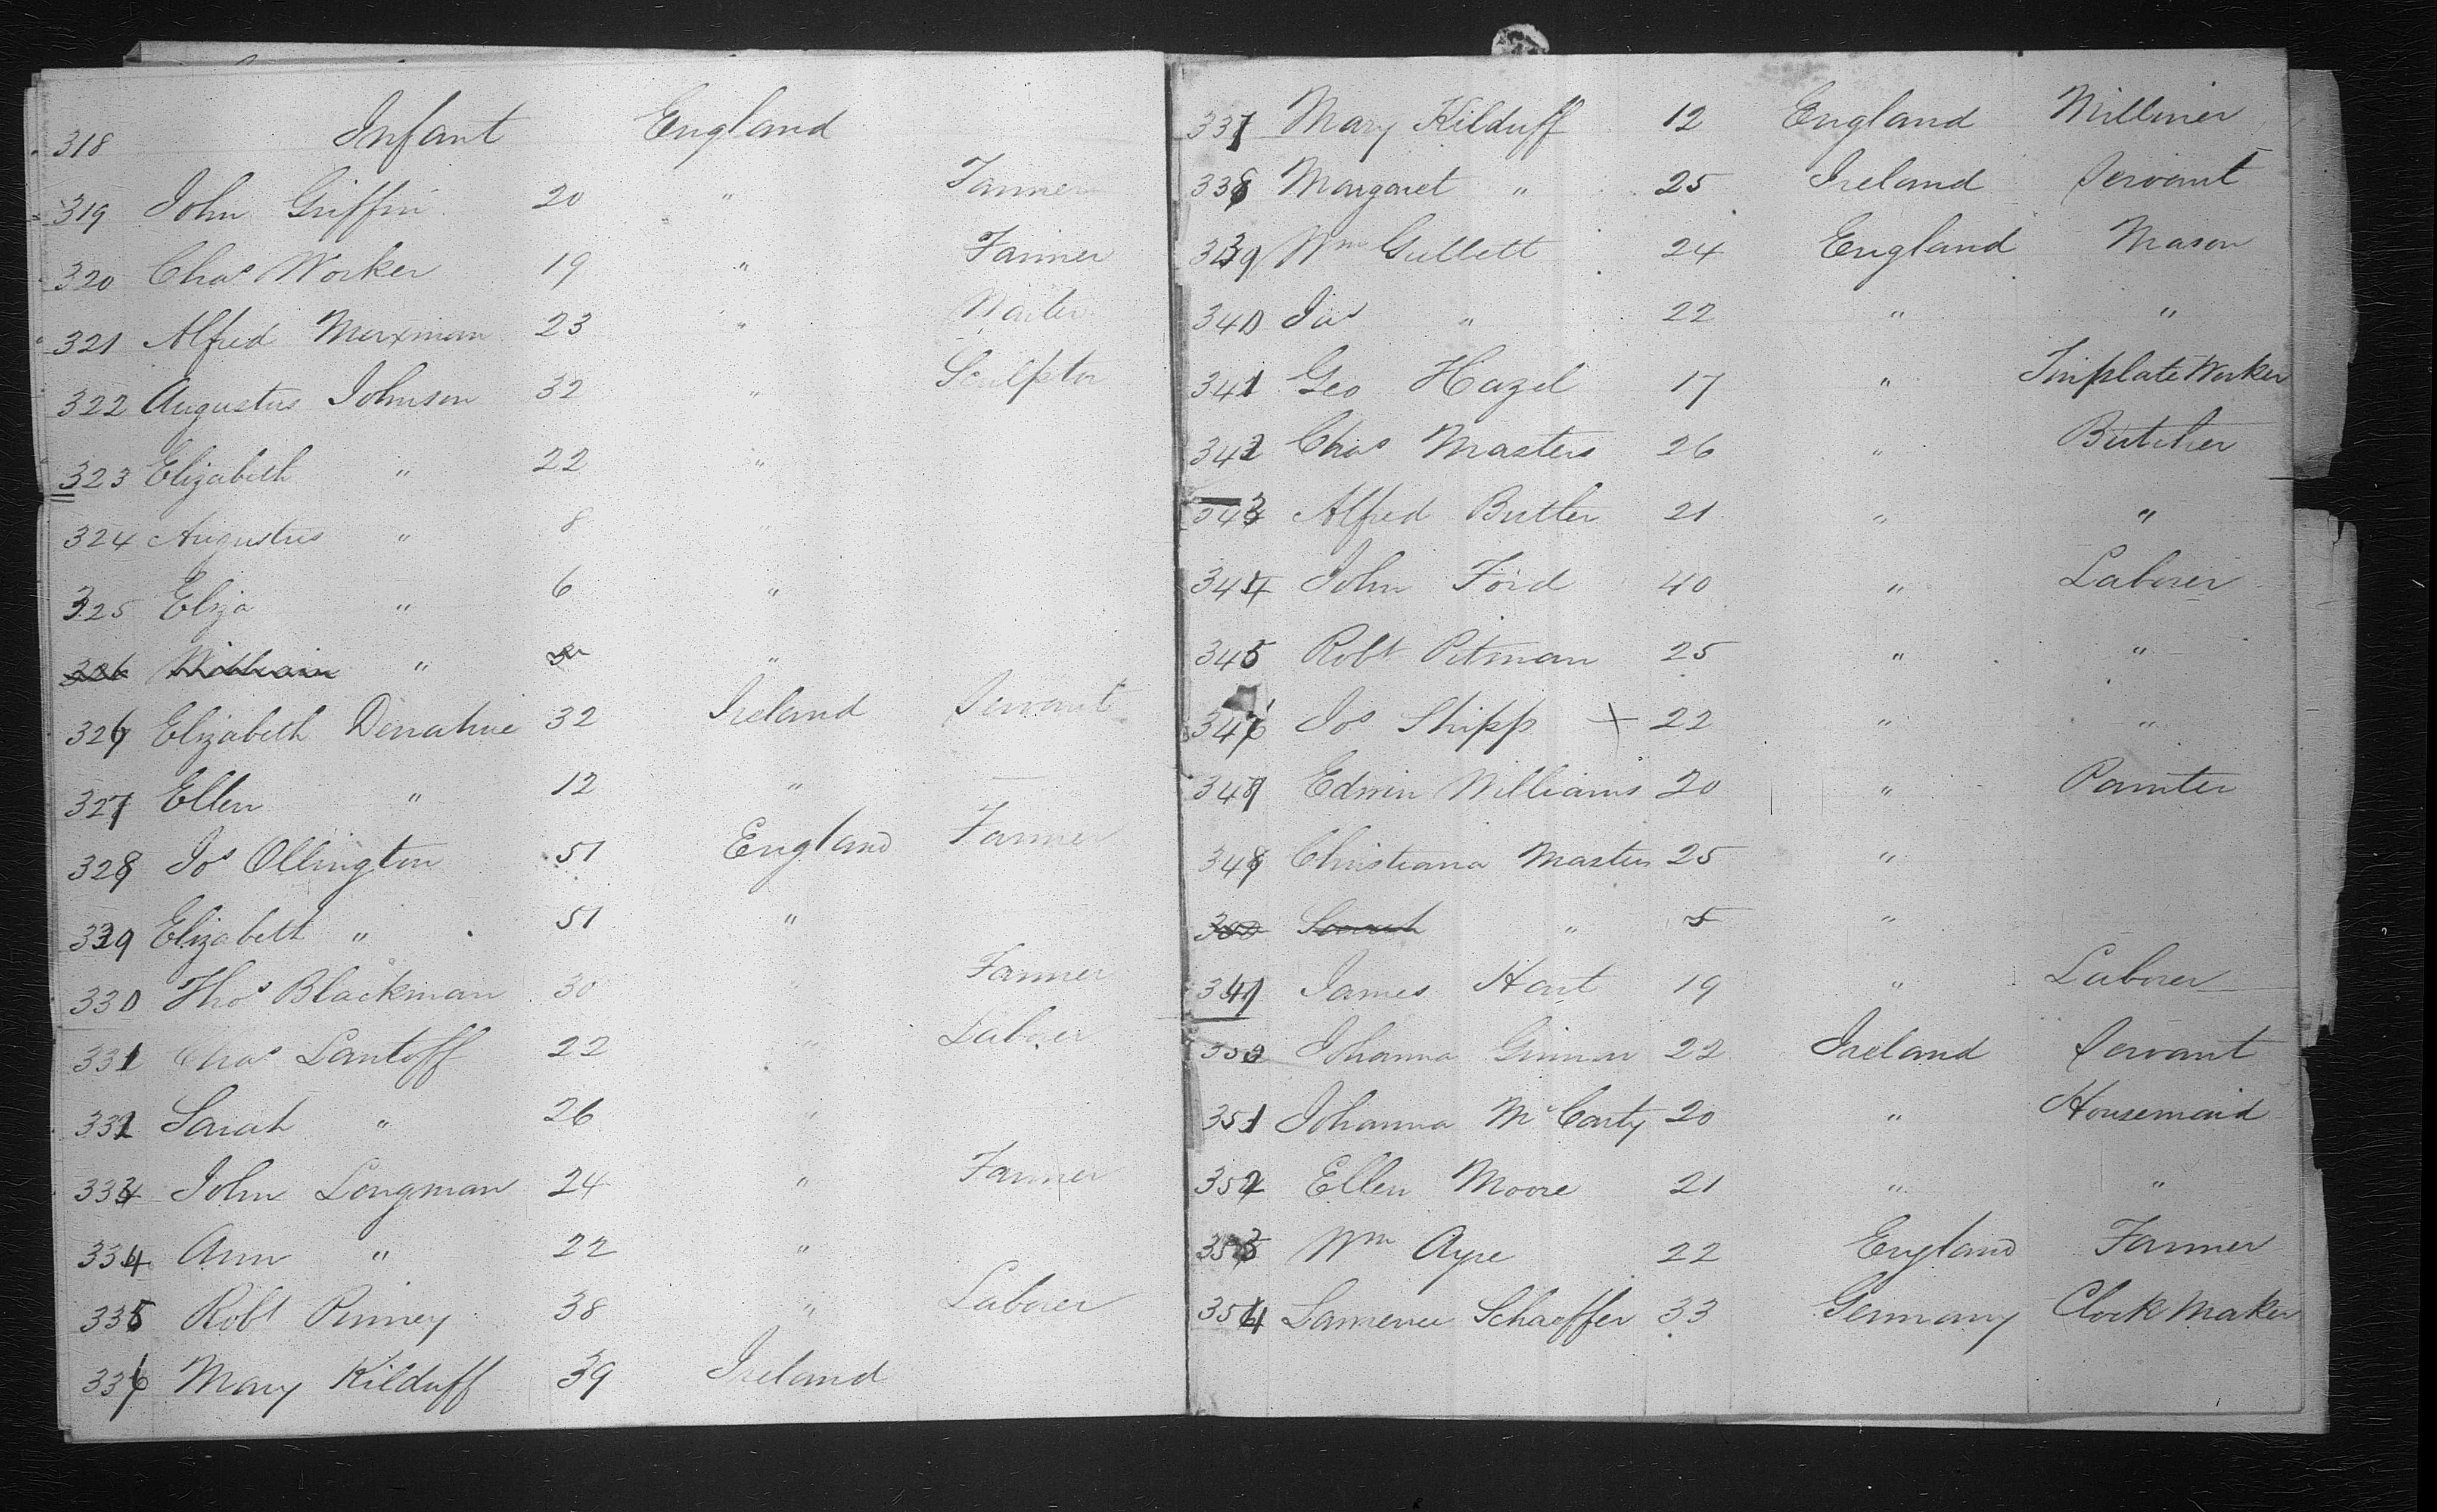 318 Infant England
319 John Griffin 20 " Farmer
320 Chas Worker 19 " Farmer
321 Alfred 23 "
322 Augustus Johnson 32 " Sculptor
323 Elizabeth " 22 "
324 Augustus " 8 "
325 Eliza " 6 "
326 William " "
326 Elizabeth Donahue 32 Ireland Servant
327 Ellen " 12 "
328 Jos Ollington 51 England Farmer
329 Elizabeth " 51 "
330 Thos Blackman 30 " Farmer
331 Chas Lantoff 22 " Laborer
332 Sarah " 26 "
333 John Longman 24 " Farmer
334 Ann " 22 "
335 Robt Pinney 38 " Laborer
336 Mary Kilduff 39 Ireland
337 Mary Kilduff 12 England Milliner
338 Margaret " 25 Ireland Servant
339 Wm Gullett 24 England Mason
340 Jas " 22 " "
341 Geo Hazel 17 " Tinplate Worker
342 Chas Masters 26 " Butcher
343 Alfred Butler 21 " "
344 John Ford 40 " Laborer
345 Robt Pitman 25 " "
346 Jos Shipp + 22 " "
347 Edwin Williams 20 " Painter
348 Christiana Masters 25 "
350 Sarah " 5 "
349 James Hart 19 " Laborer
350 Johanna 22 Ireland Servant
351 Johanna McCarty 20 " Housemaid
352 Ellen Moore 21 " "
353 Wm Ayre 22 England Farmer
354 Lawrence Schaeffer 33 Germany Clock Maker